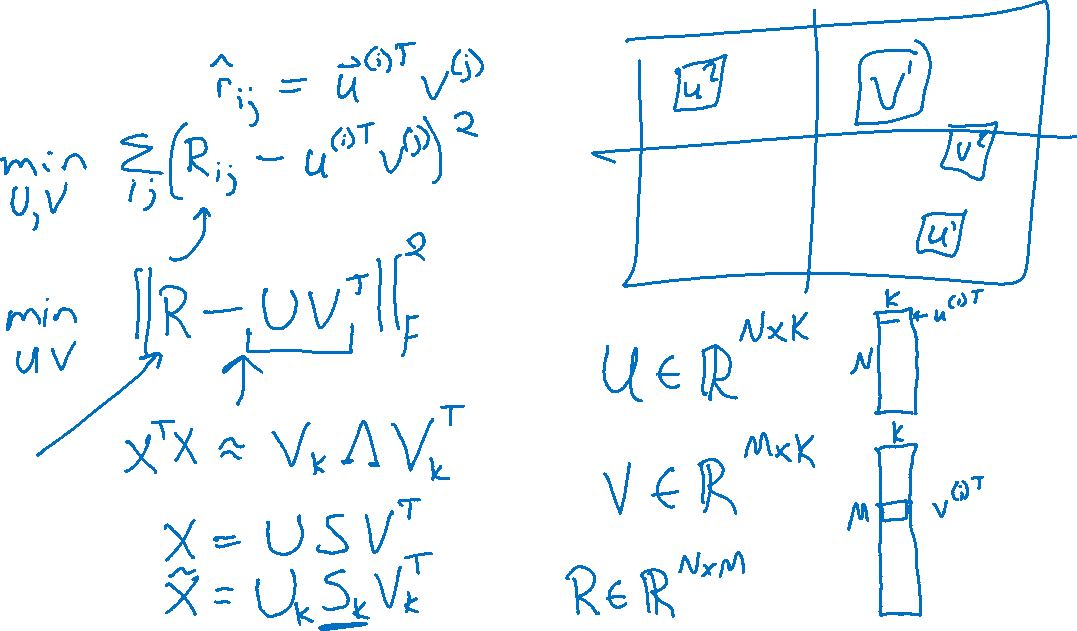 r̂ᵢⱼ = u⃗⁽ⁱ⁾ᵀ v⁽ʲ⁾
min U,V Σᵢⱼ (Rᵢⱼ − u⁽ⁱ⁾ᵀ v⁽ʲ⁾)²
min UV ‖R − UVᵀ‖²_F
XᵀX ≈ Vₖ Λ Vₖᵀ
X = U S Vᵀ
X̃ = Uₖ Sₖ Vₖᵀ
u² V¹
v²
u¹
U ∈ ℝᴺˣᴷ
K
u⁽ⁱ⁾ᵀ
N
V ∈ ℝᴹˣᴷ
K
M v⁽ʲ⁾ᵀ
R ∈ ℝᴺˣᴹ